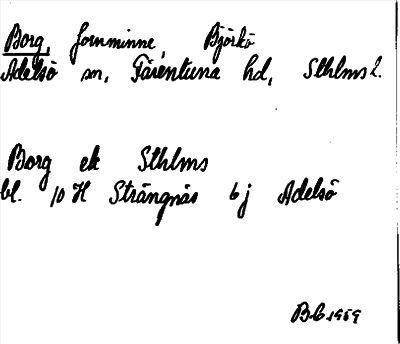 Borg, fornminne, Björkö
Adelsö sn, Färentuna hd, Sthlms l.
Borg ek Sthlms
bl. 10 H Strängnäs 6 j Adelsö
B.G 1959